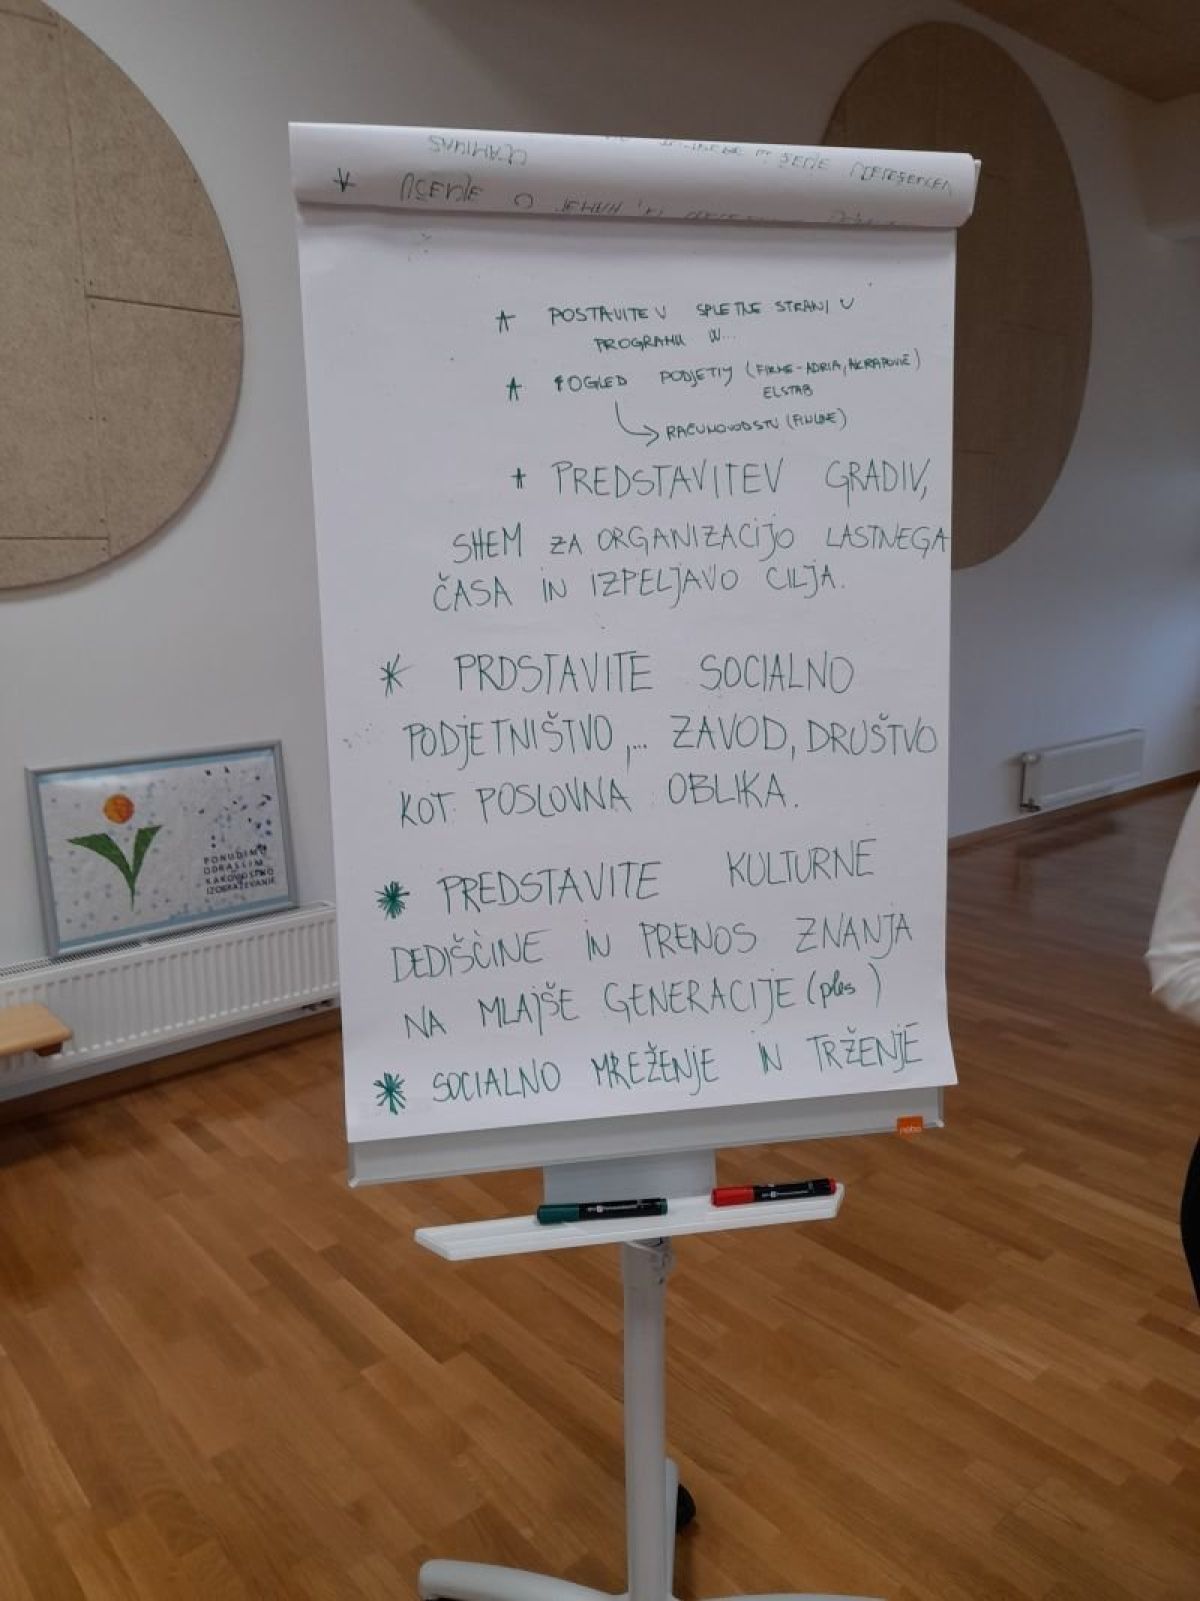 * POSTAVITEV SPLETNE STRANI V
PROGRAMU W...
* POGLED PODJETIJ (FIRME-ADRIA, AKRAPOVIČ)
ELSTAB
RAČUNOVODSTV (FINLINE)
* PREDSTAVITEV GRADIV,
SHEM ZA ORGANIZACIJO LASTNEGA
ČASA IN IZPELJAVO CILJA.
* PRDSTAVITE SOCIALNO
PODJETNIŠTVO,... ZAVOD, DRUŠTVO
KOT POSLOVNA OBLIKA.
* PREDSTAVITE KULTURNE
DEDIŠČINE IN PRENOS ZNANJA
NA MLAJŠE GENERACIJE (ples)
* SOCIALNO MREŽENJE IN TRŽENJE
nobo
PONUDIMO
ODRASLIM
KAKOVOSTNO
IZOBRAŽEVANJE